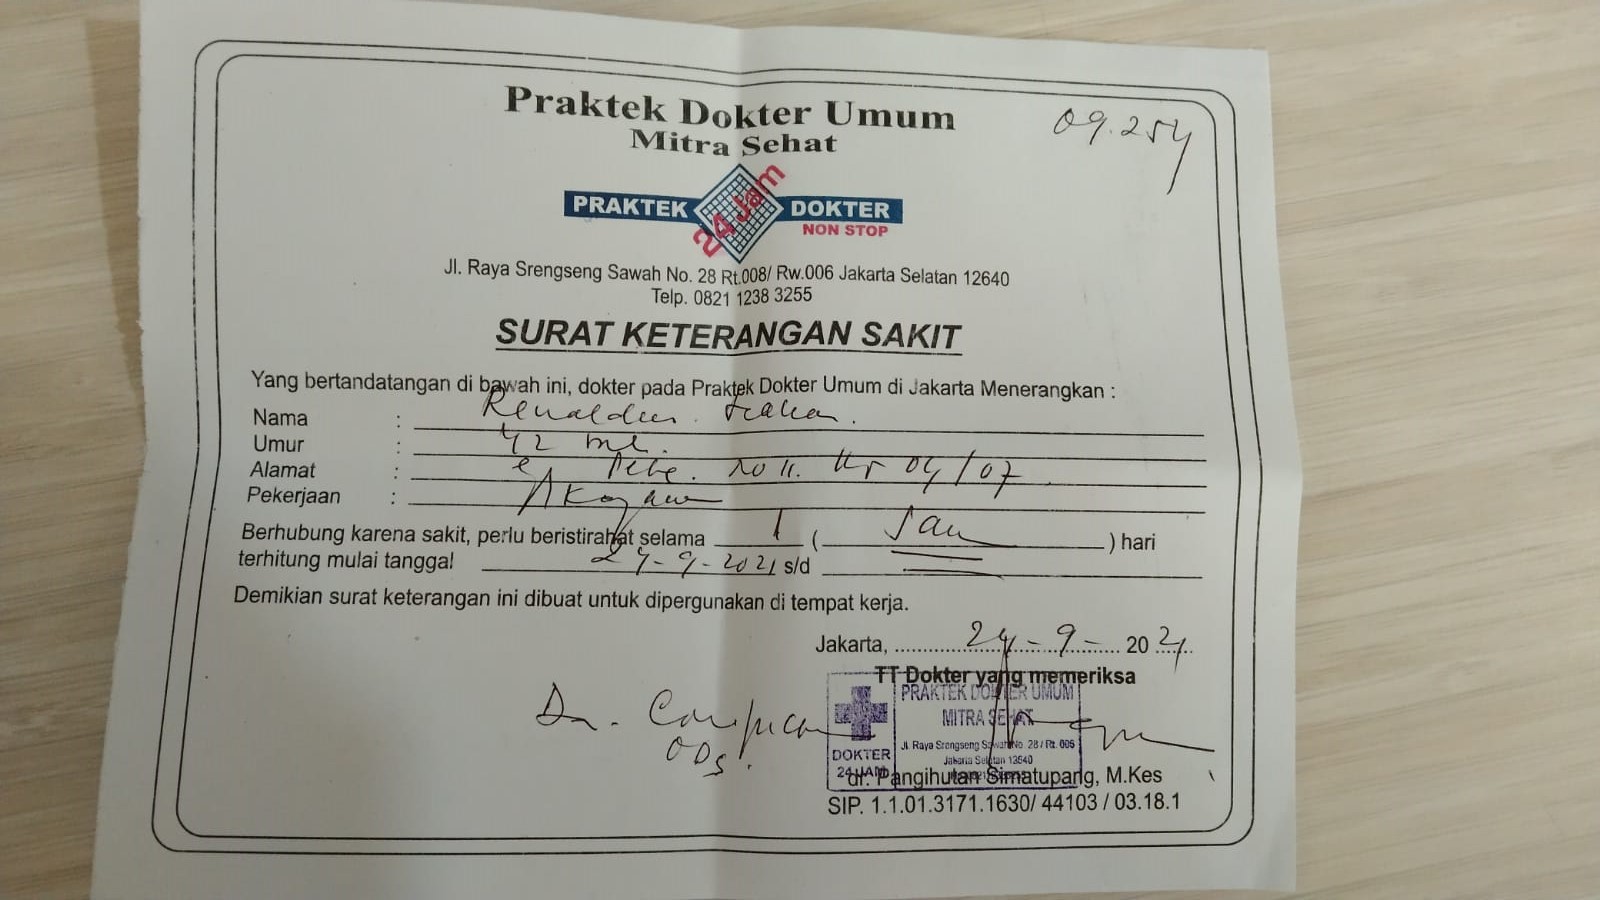 Praktek Dokter Umum
Mitra Sehat
09.254
PRAKTEK DOKTER
24 Jam
NON STOP
Jl. Raya Srengseng Sawah No. 28 Rt.008/ Rw.006 Jakarta Selatan 12640
Telp. 0821 1238 3255
SURAT KETERANGAN SAKIT
Yang bertandatangan di bawah ini, dokter pada Praktek Dokter Umum di Jakarta Menerangkan :
Nama :
Umur : 42
Alamat : 04/07
Pekerjaan :
Berhubung karena sakit, perlu beristirahat selama 1 ( ) hari
terhitung mulai tanggal 24-9-2021 s/d
Demikian surat keterangan ini dibuat untuk dipergunakan di tempat kerja.
Jakarta, 24-9-2021
TT Dokter yang memeriksa
PRAKTEK DOKTER UMUM
MITRA SEHAT
Jl. Raya Srengseng Sawah No. 28 / Rt. 006
DOKTER
24 JAM
dr. Pangihutan Simatupang, M.Kes
SIP. 1.1.01.3171.1630/ 44103 / 03.18.1